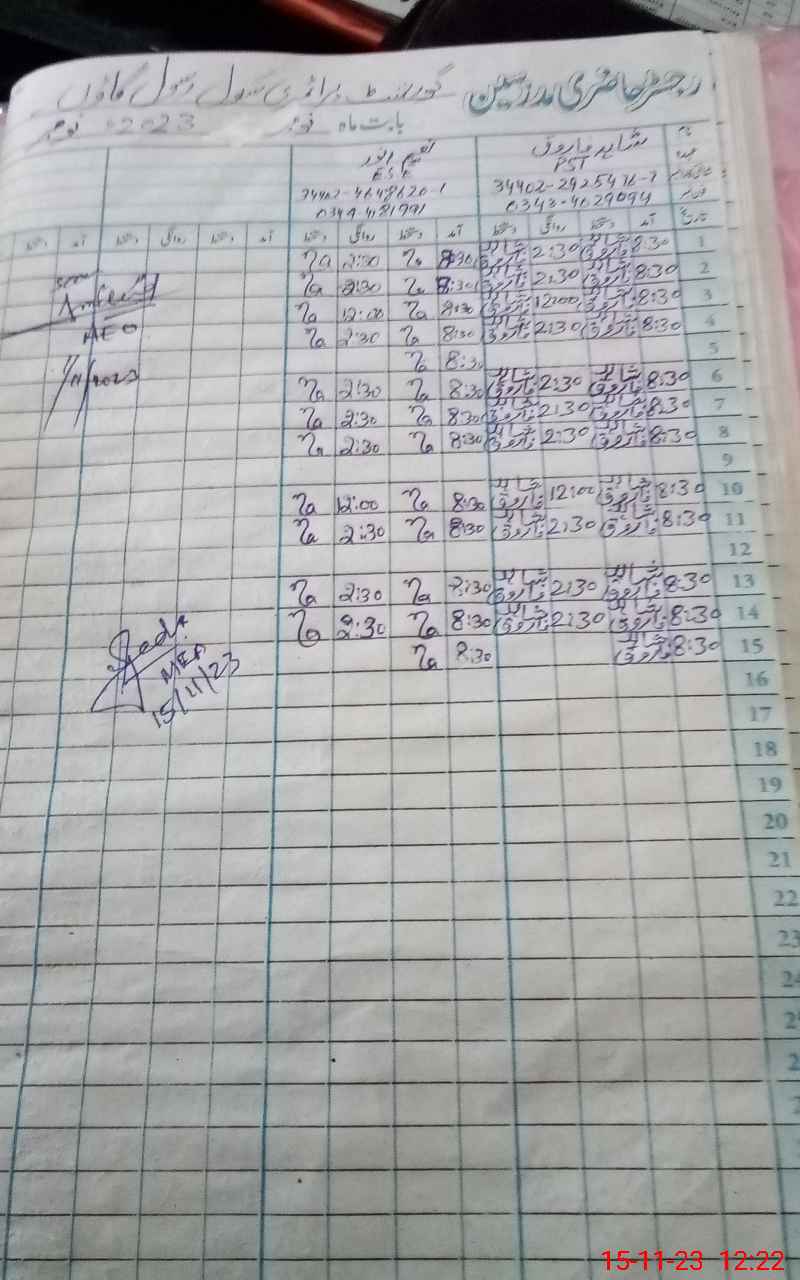 رجسٹر حاضری مدرسین گورنمنٹ پرائمری سکول رسول گاؤں
بابت ماہ نومبر 2023 نومبر
نام شاہد فاروق نعیم انور
عہدہ PST ESE
34402-2925476-7
0343-4029094
تاریخ آمد دستخط روانگی دستخط آمد دستخط روانگی دستخط آمد دستخط روانگی دستخط آمد دستخط
1 8:30 شاہد فاروق 2:30 شاہد فاروق 8:30 Na 2:30 Na
2 8:30 شاہد فاروق 2:30 شاہد فاروق 8:30 Na 2:30 Na
3 8:30 شاہد فاروق 12:00 شاہد فاروق 8:30 Na 12:00 Na
4 8:30 شاہد فاروق 2:30 شاہد فاروق 8:30 Na 2:30 Na
5 8:30 Na
6 8:30 شاہد فاروق 2:30 شاہد فاروق 8:30 Na 2:30 Na
7 8:30 شاہد فاروق 2:30 شاہد فاروق 8:30 Na 2:30 Na
8 8:30 شاہد فاروق 2:30 شاہد فاروق 8:30 Na 2:30 Na
9
10 8:30 شاہد فاروق 12:00 شاہد فاروق 8:30 Na 12:00 Na
11 8:30 شاہد فاروق 2:30 شاہد فاروق 8:30 Na 2:30 Na
12
13 8:30 شاہد فاروق 2:30 شاہد فاروق Na 2:30 Na
14 8:30 شاہد فاروق 2:30 شاہد فاروق 8:30 Na 2:30 Na
15 8:30 شاہد فاروق 8:30 Na
16
17
18
19
20
21
22
23
AEO
MEA
15/11/23
15-11-23 12:22